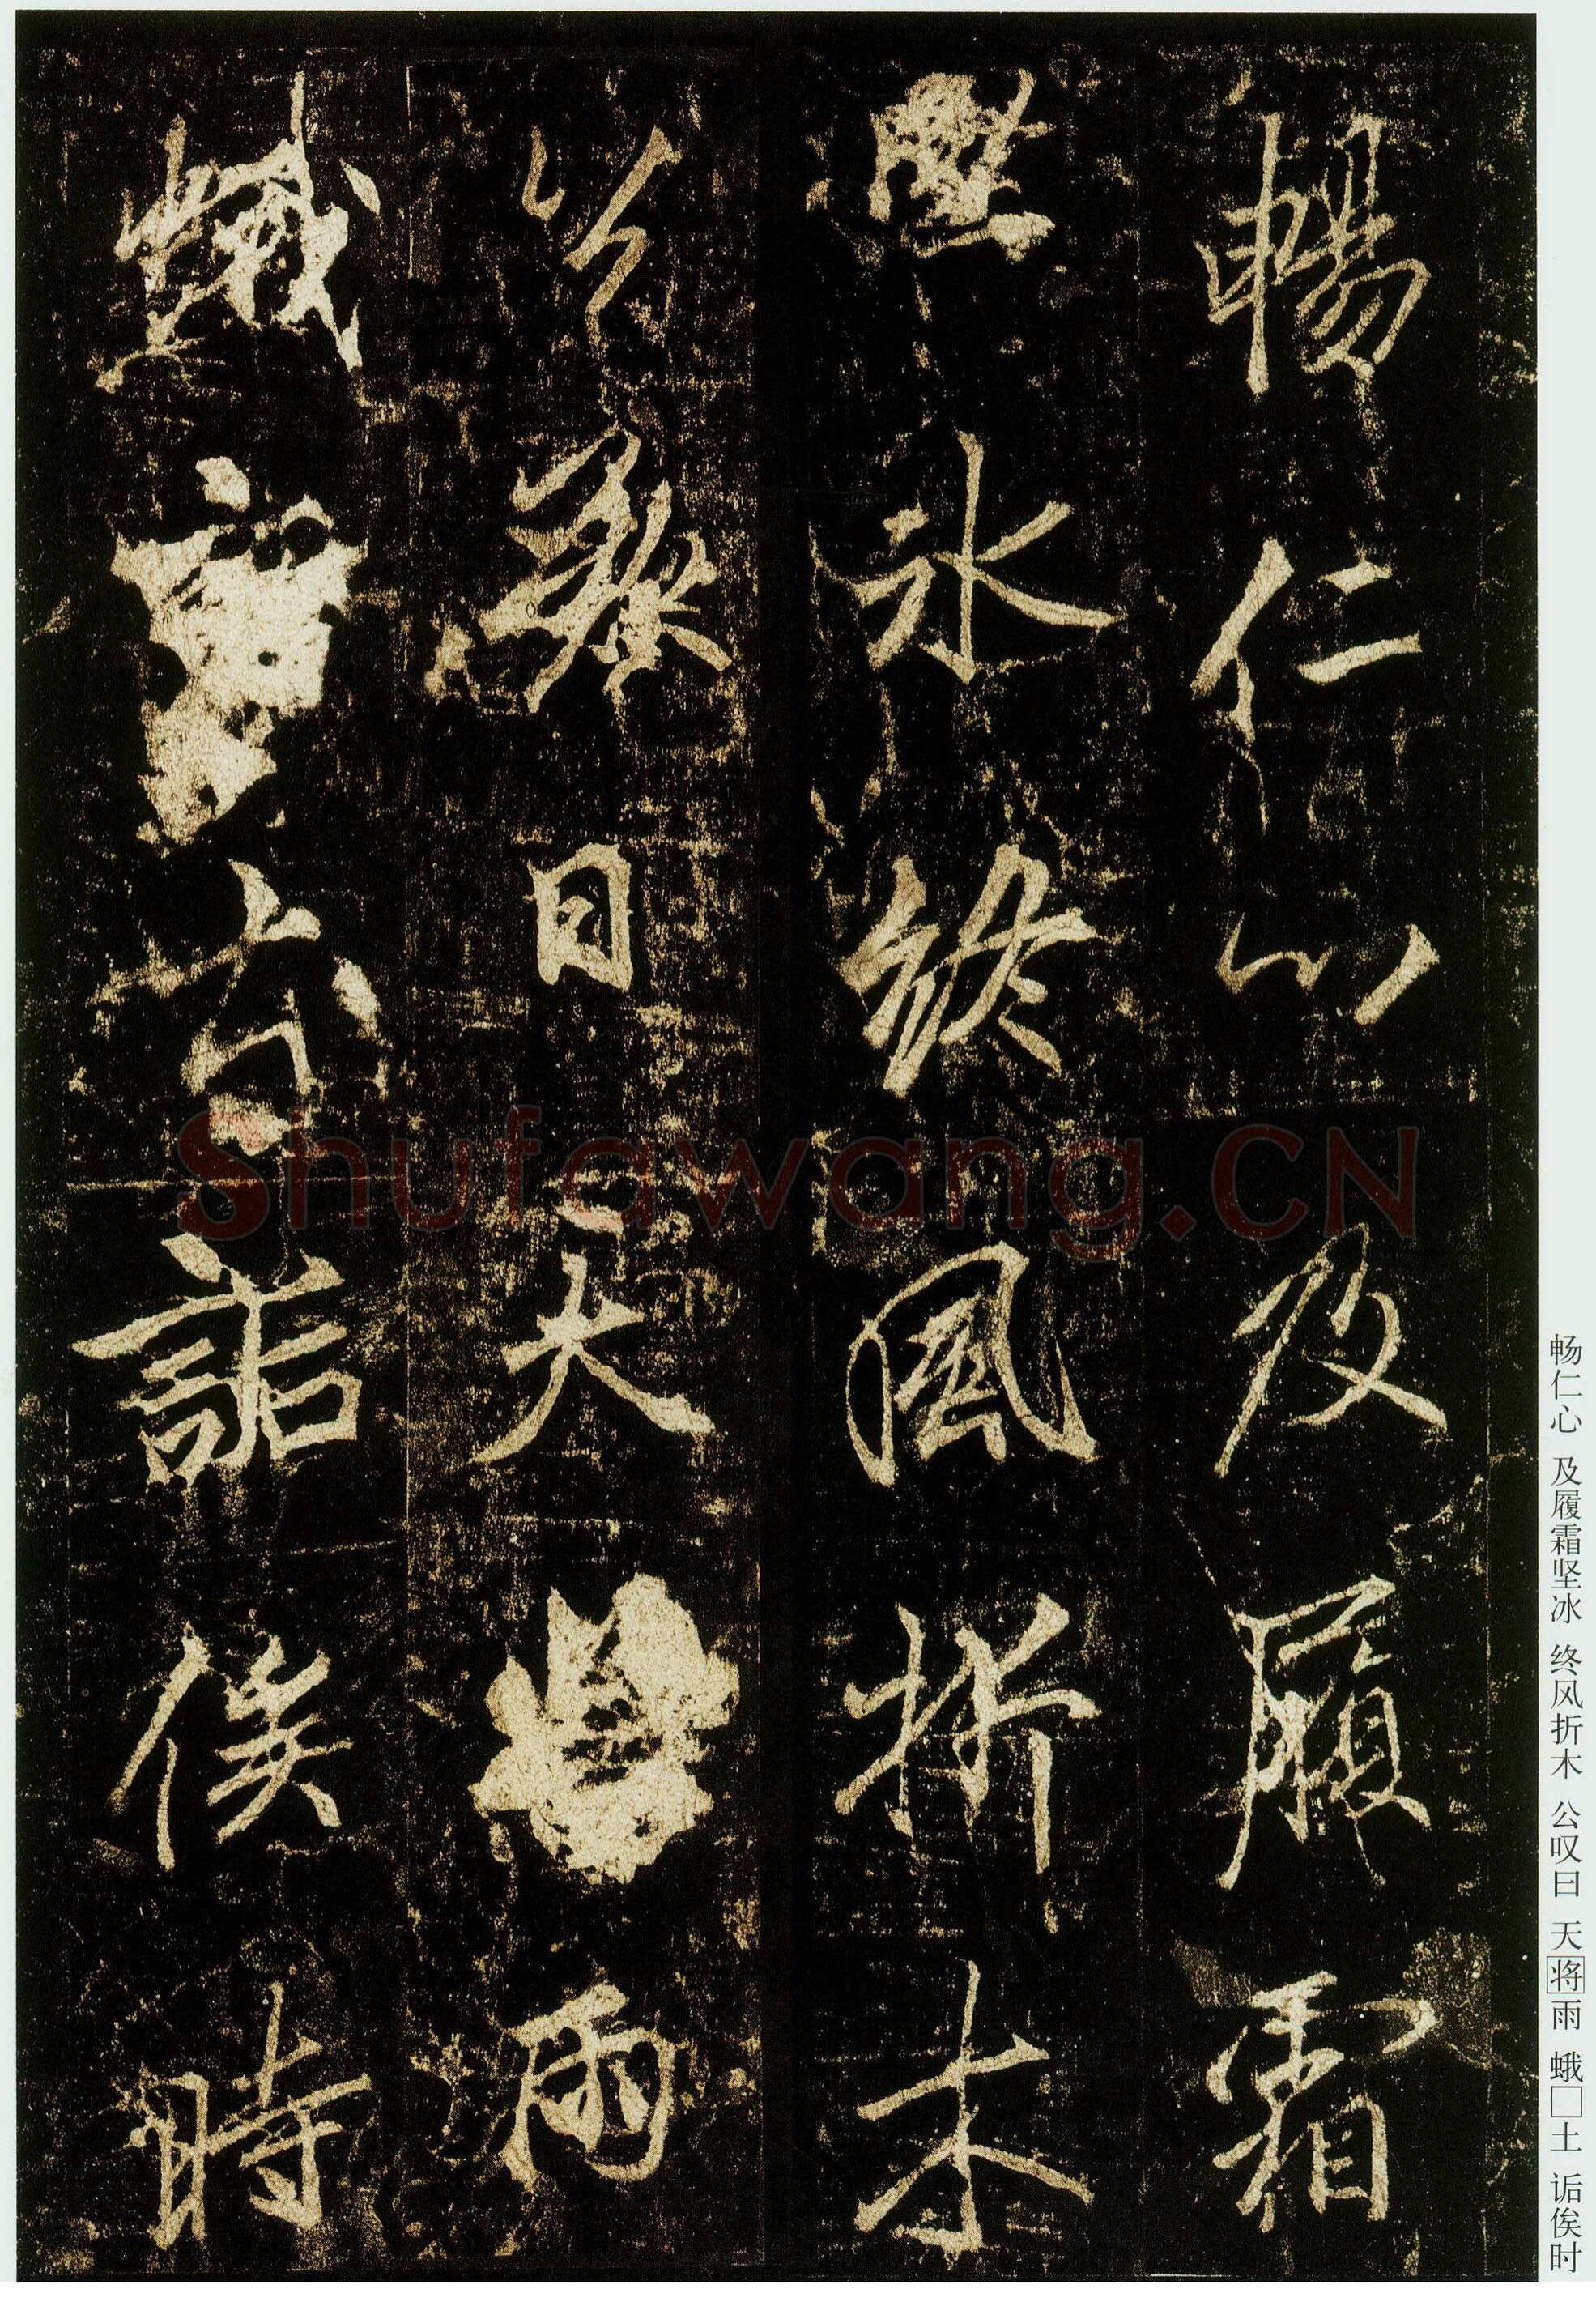 暢仁心及履霜
堅氷終風折木
公歎曰天雨
蛾詬俟時
畅仁心 及履霜坚冰 终风折木 公叹曰 天将雨 蛾□土 诟俟时
Shufawang.CN